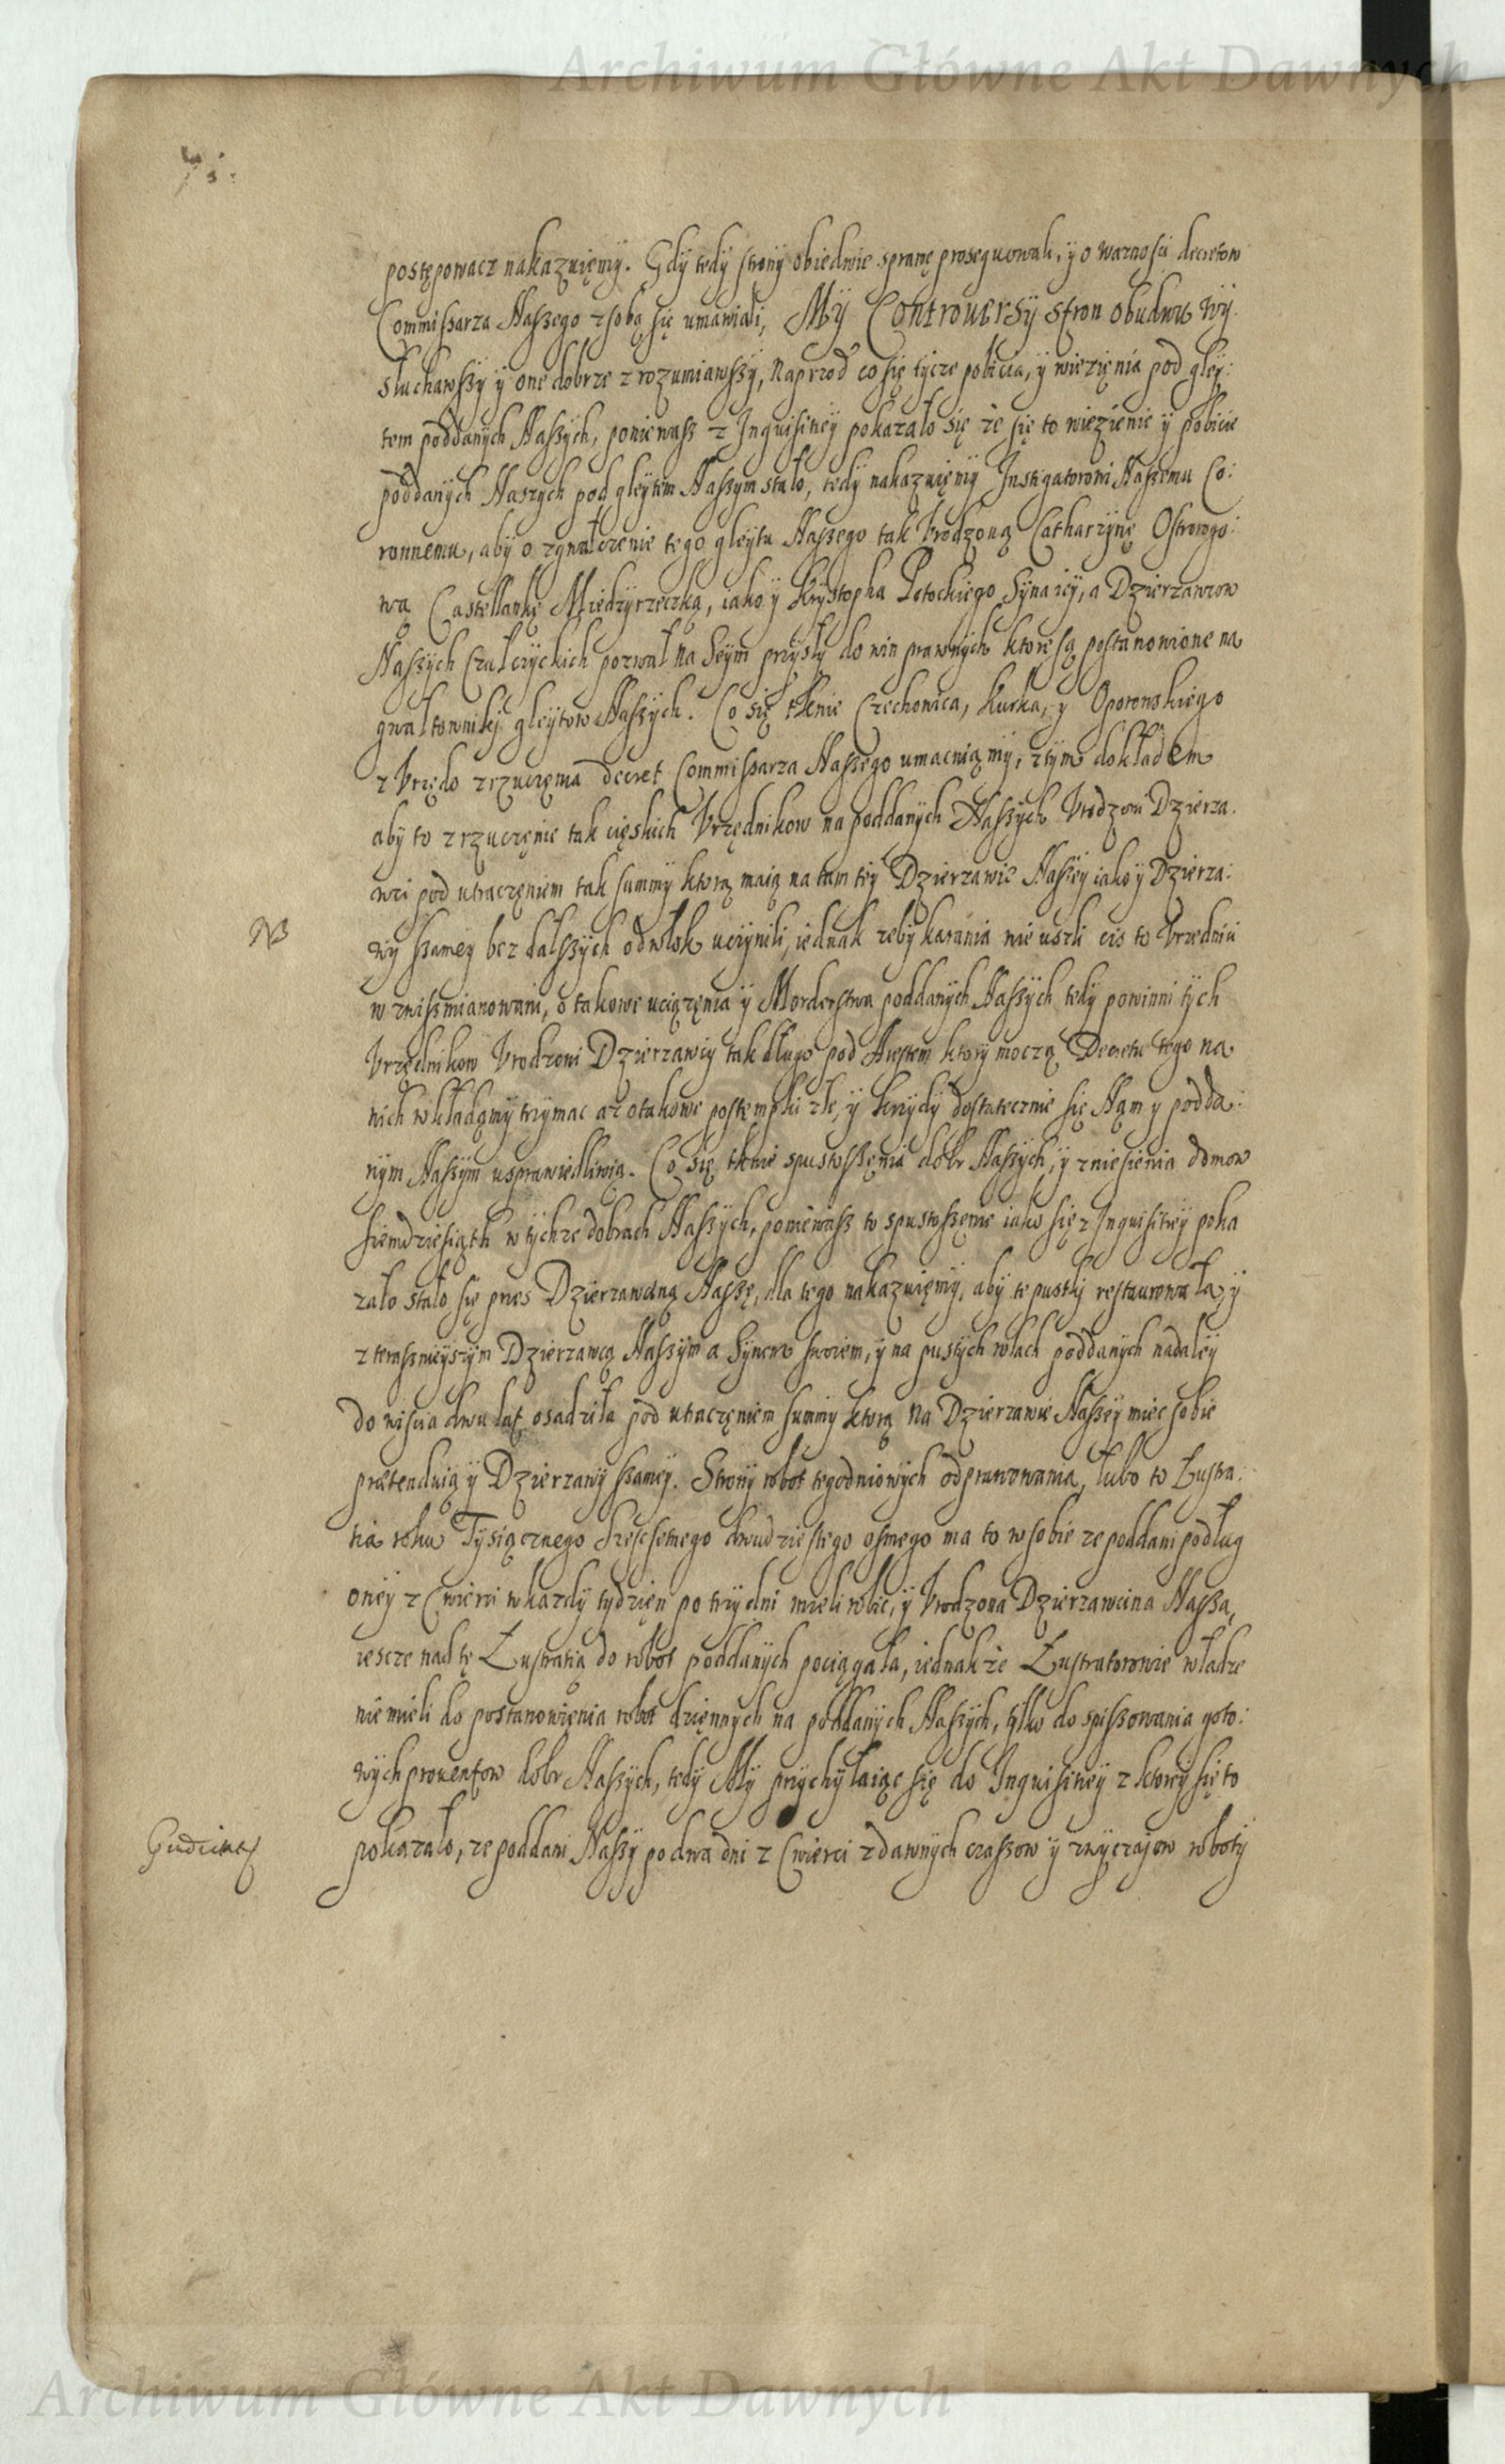 Archiwum Główne Akt Dawnych
postępowacz nakazuięmy. Gdy tedy strony obiedwie sprawę prosequowali, y o warnosci decretow
Commissarza Naszego zsobą się umawiali, My Controuersy stron obudwu wy:
słuchawszy y one dobrze zrozumiawszy, Naprzod co się tycze pobicia, y wiezięnia pod gley:
tem poddanych Naszych, poniewasz z Inquisitiey pokazało się że się to wiezienie y pobicie
poddanych Naszych pod gleytem Naszym stało, tedy nakazuięmy Instigatorowi Naszemu Co:
ronnemu, aby o zgwałczenie tego gleytu Naszego tak Vrodzoną Catharzynę Ostrorogo:
wą Castellankę Miedzyrzeczką, iako y Krystopha Potockiego Syna iey, a Dzierzawcow
Naszych Czulczyckich pozwał na Seym przysły do win prawnych ktore są postanowione na
gwałtowniki gleytow Naszych. Co się tknie Czechonica, Kurka, y Oporowskiego
z Vrzędo zrzucęnia decret Commissarza Naszego umacniąmy, ztym dokładem
aby to zrzucęnie tak cięskich Vrzędnikow na poddanych Naszych Vrodzoni Dzierza:
wci pod utraczęniem tak summy ktorą maią na tam tey Dzierzawie Naszey iako y Dzierza:
wy szamey bez dalszych odwłok uczynili, iednak zeby karania nie uszli cis to Vrzednici
NB
wzwiszmianowani, o takowe uciązęnia y Morderstwa poddanych Naszych tedy powinni tych
Vrzędnikow Vrodzoni Dzierzawcy tak długo pod Arestem ktory moczą Decretu tego na
nich wkładąmy trzymac az o takowe postempki złe, y krzydy dostatecznie się Nąm y podda:
nym Naszym usprawiedliwią. Co się tknie spustoszęnia dobr Naszych, y zniesienia domow
siemdziesiąth w tychze dobrach Naszych, poniewasz to spustoszęnie iako się z Inquisitiey poka
zało stało się przes Dzierzawciną Naszę, dla tego nakazuięmy, aby te pustki restaurowała y
z terasznieyszym Dzierzawcą Naszym a Synem swoiem, y na pustych włach poddanych nadaley
do wiscia dwu lat osadziła pod utraczęniem summy ktorą na Dzierzawie Naszey miec sobie
prætenduią y Dzierzawy szamey. Strony robot tegodniowych odprawowania, lubo to Lustra:
tia roku Tysiącznego Szescsetnego dwudziestego osmego ma to w sobie ze poddani podług
oney z Cwierci w kazdy tydzięn po trzy dni mieli robic, y Vrodzona Dzierzawcina Nasza,
iescze nad tę Lustratią do robot poddanych pociągała, iednak że Lustratorowie władze
nie mieli do postanowięnia robot dzięnnych na poddanych Naszych, tylko do spiszowania goto:
wych prouentow dobr Naszych, tedy My przychylaiąc się do Inquisitiey z ktorey się to
pokazało, ze poddani Naszy po dwa dni z Cwierci zdawnych czaszow y zwyczajow roboty
Archiwum Główne Akt Dawnych